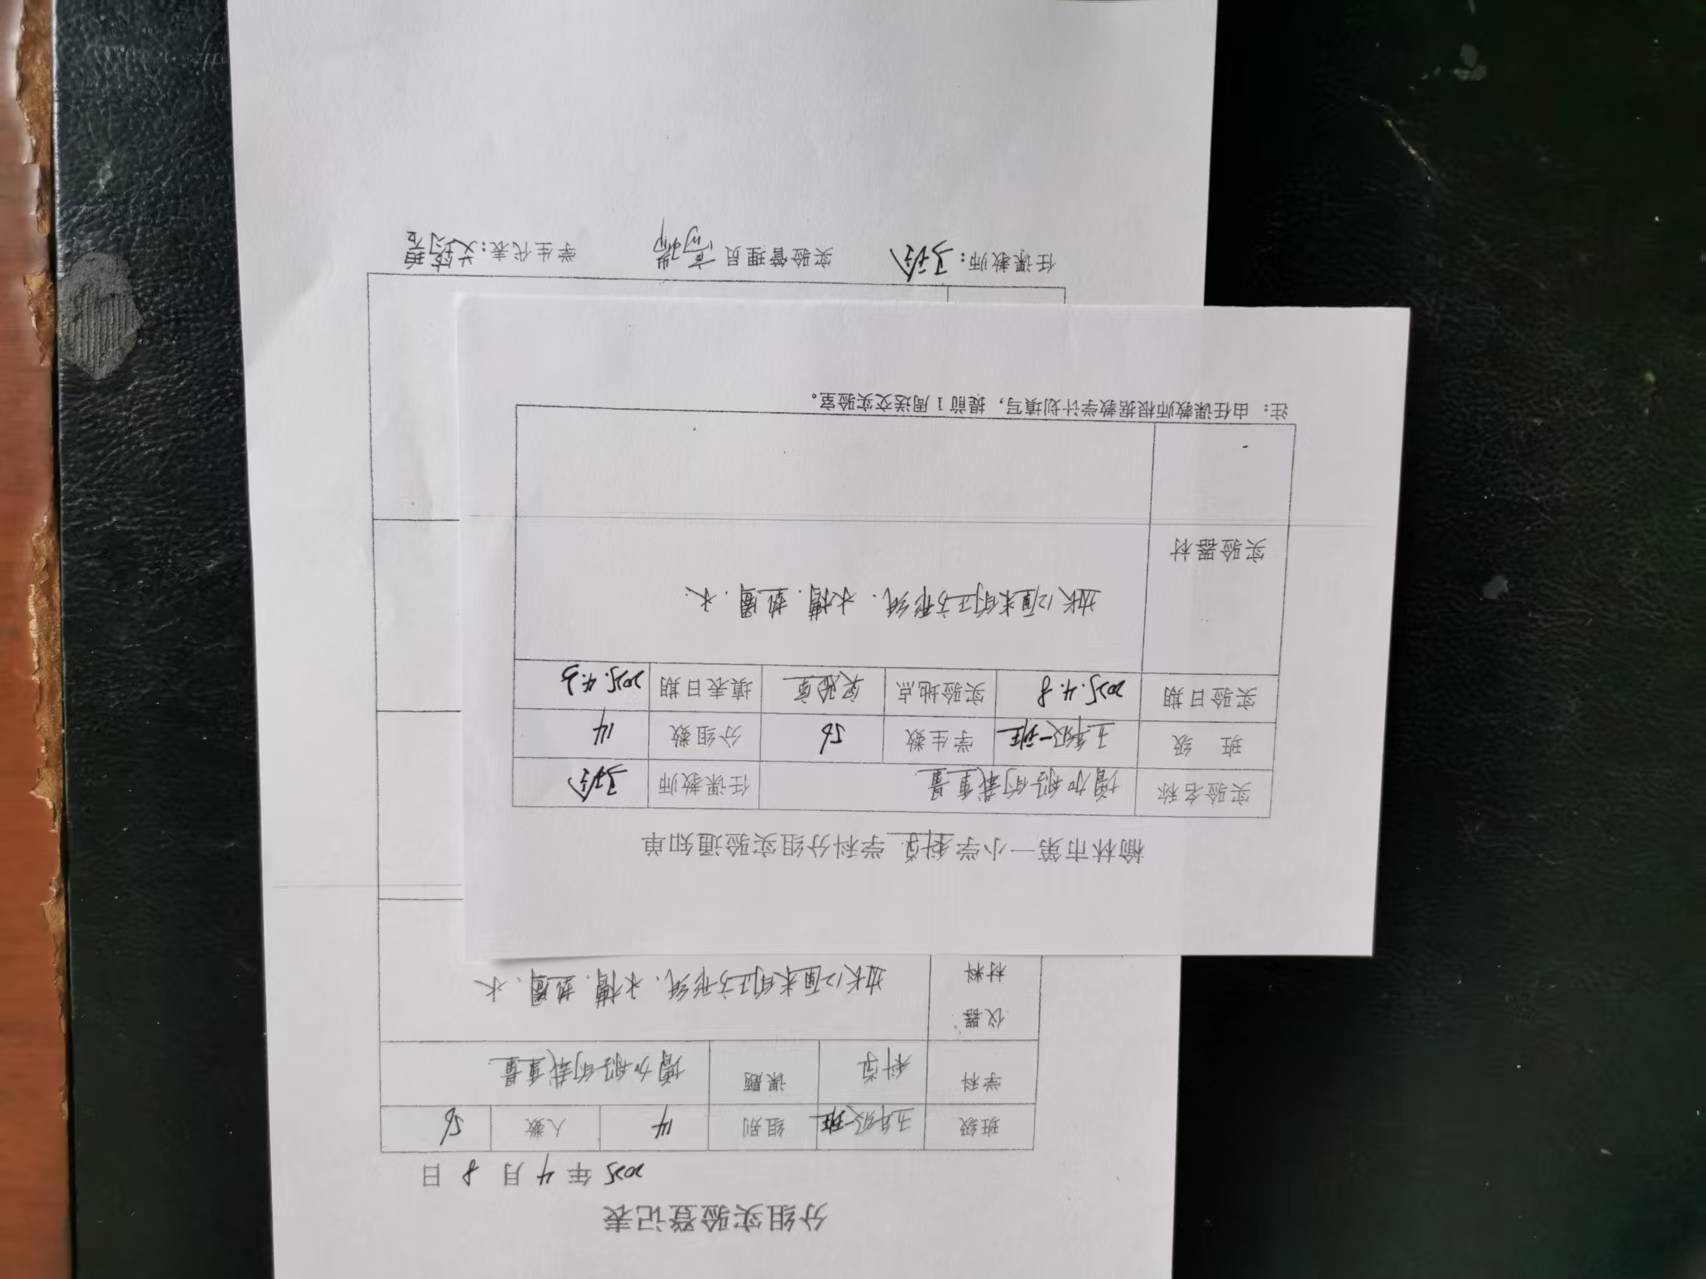 分组实验登记表
2025年4月8日
班级 五年级一班 组别 14 人数 56
学科 科学 课题 增加船的载重量
仪器
材料 边长12厘米的正方形纸、水槽、垫圈、水
榆林市第一小学科学学科分组实验通知单
实验名称 增加船的载重量 任课教师
班 级 五年级一班 学生数 56 分组数 14
实验日期 2025.4.8 实验地点 实验室 填表日期 2025.4.3
边长12厘米的正方形纸、水槽、垫圈、水
实验器材
注：由任课教师根据教学计划填写，提前1周送交实验室。
任课教师： 实验管理员 学生代表：